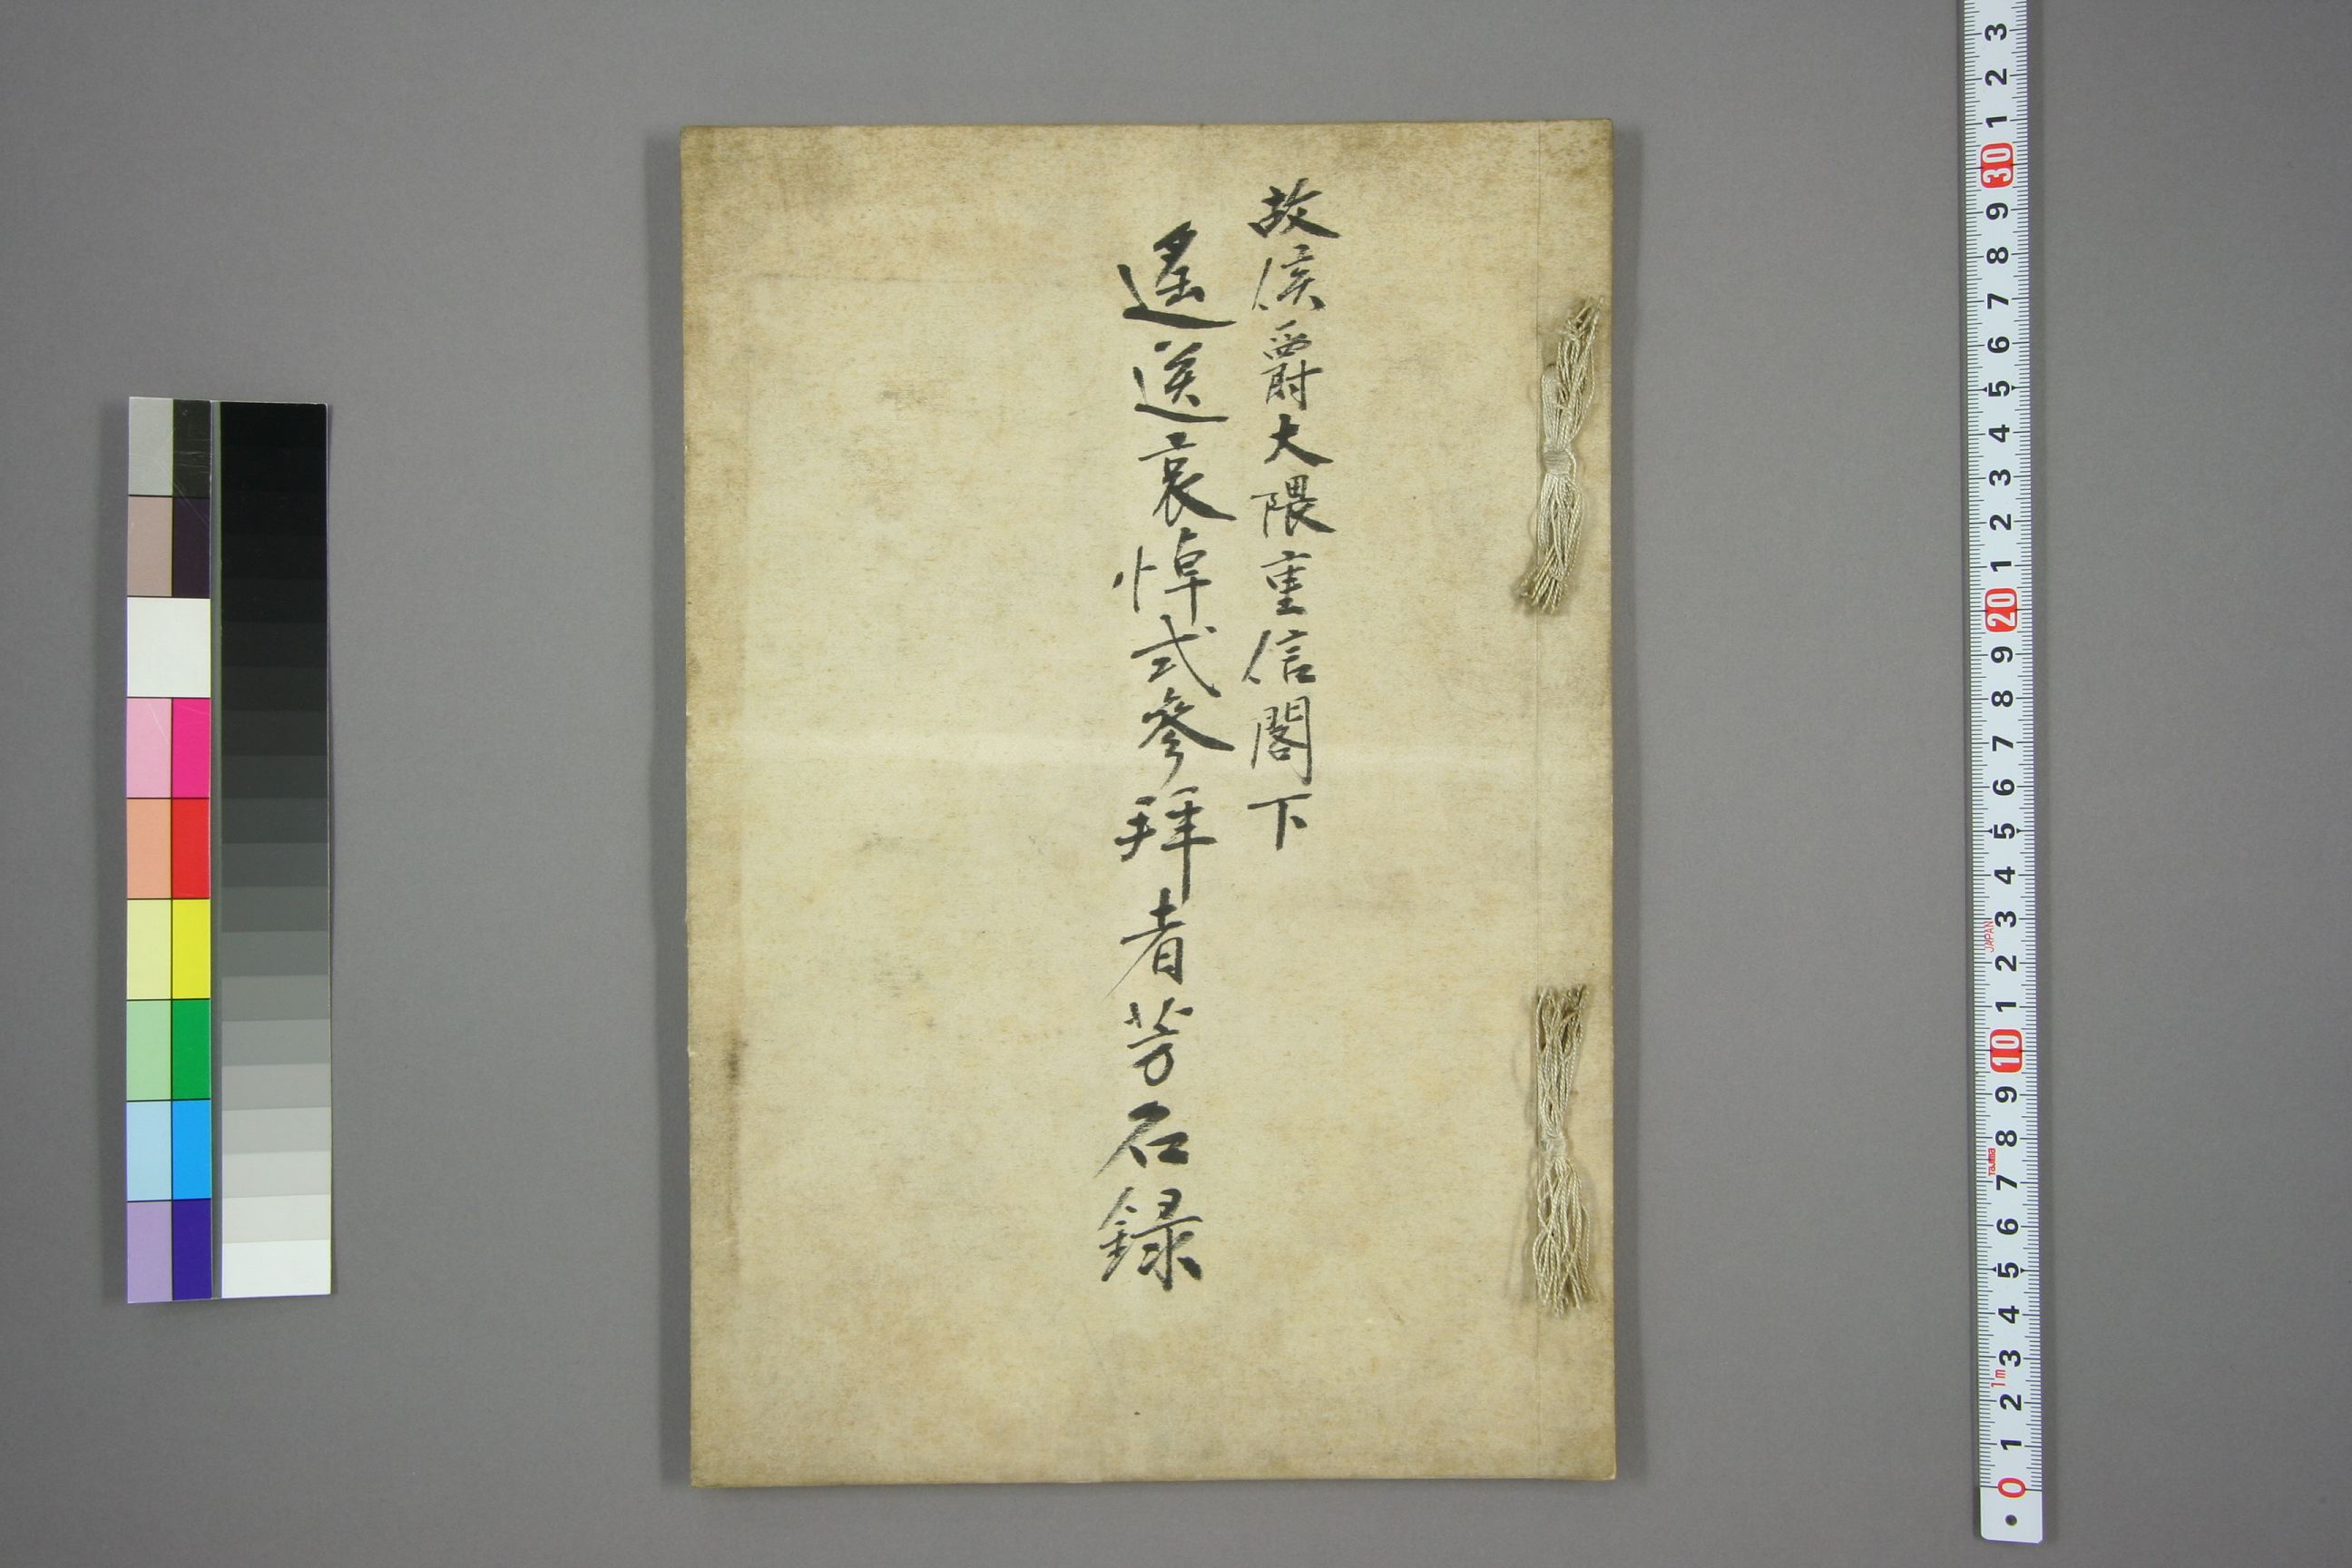 故侯爵大隈重信閣下
遙送哀悼式參拜者芳名録
0 1 2 3 4 5 6 7 8 9 10 1 2 3 4 5 6 7 8 9 20 1 2 3 4 5 6 7 8 9 30 1 2 3
1m
Tajima
JAPAN